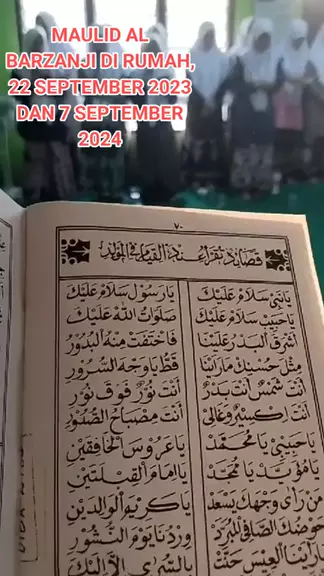 MAULID AL
BARZANJI DI RUMAH,
22 SEPTEMBER 2023
DAN 7 SEPTEMBER
2024
٧٠
قصائد تقرأ عند القيام في المولد
يَا نَبِيْ سَلَامْ عَلَيْكَ يَا رَسُوْلْ سَلَامْ عَلَيْكَ
يَا حَبِيْبْ سَلَامْ عَلَيْكَ صَلَوَاتُ اللهْ عَلَيْكَ
أَشْرَقَ الْبَدْرُ عَلَيْنَا فَاخْتَفَتْ مِنْهُ الْبُدُوْرُ
مِثْلَ حُسْنِكْ مَا رَأَيْنَا قَطُّ يَا وَجْهَ السُّرُوْرِ
أَنْتَ شَمْسٌ أَنْتَ بَدْرٌ أَنْتَ نُوْرٌ فَوْقَ نُوْرٍ
أَنْتَ إِكْسِيْرٌ وَغَالِيْ أَنْتَ مِصْبَاحُ الصُّدُوْرِ
يَا حَبِيْبِيْ يَا مُحَمَّدْ يَا عَرُوْسَ الْخَافِقَيْنِ
يَا مُؤَيَّدْ يَا مُمَجَّدْ يَا إِمَامَ الْقِبْلَتَيْنِ
مَنْ رَأَى وَجْهَكَ يَسْعَدْ يَا كَرِيْمَ الْوَالِدَيْنِ
حَوْضُكَ الصَّافِي الْمُبَرَّدْ وِرْدُنَا يَوْمَ النُّشُوْرِ
مَا رَأَيْنَا الْعِيْسَ حَنَّتْ بِالسُّرَى إِلَّا إِلَيْكَ